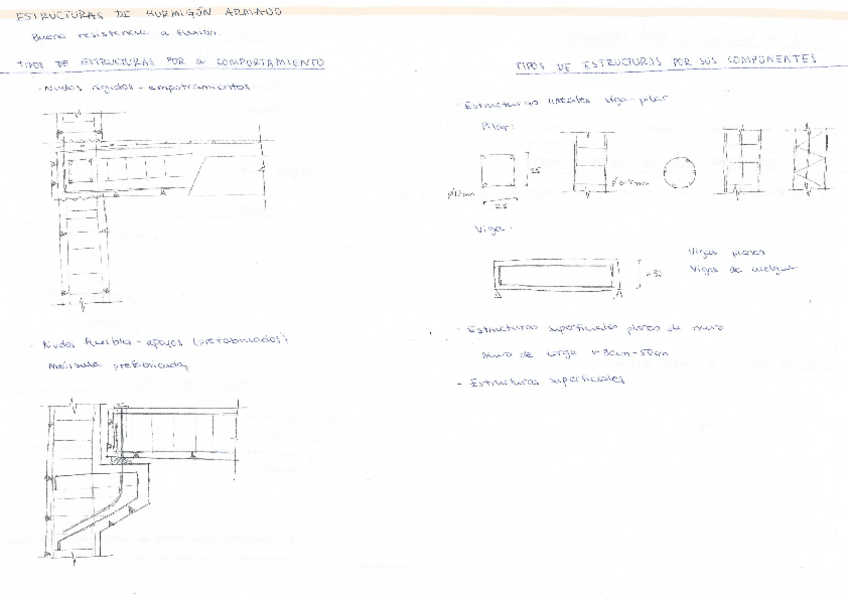 ESTRUCTURAS DE HORMIGÓN ARMADO
Buena resistencia a flexión.
TIPOS DE ESTRUCTURAS POR SU COMPORTAMIENTO
- Nudos rígidos - empotramientos
- Nudos flexibles - apoyos (prefabricados)
Ménsula prefabricada
TIPOS DE ESTRUCTURAS POR SUS COMPONENTES
- Estructuras lineales viga-pilar
Pilar:
25
25
Viga:
Vigas planas
Vigas de cuelgue
- Estructuras superficiales planas de muro
Muro de carga 30cm-50cm
- Estructuras superficiales